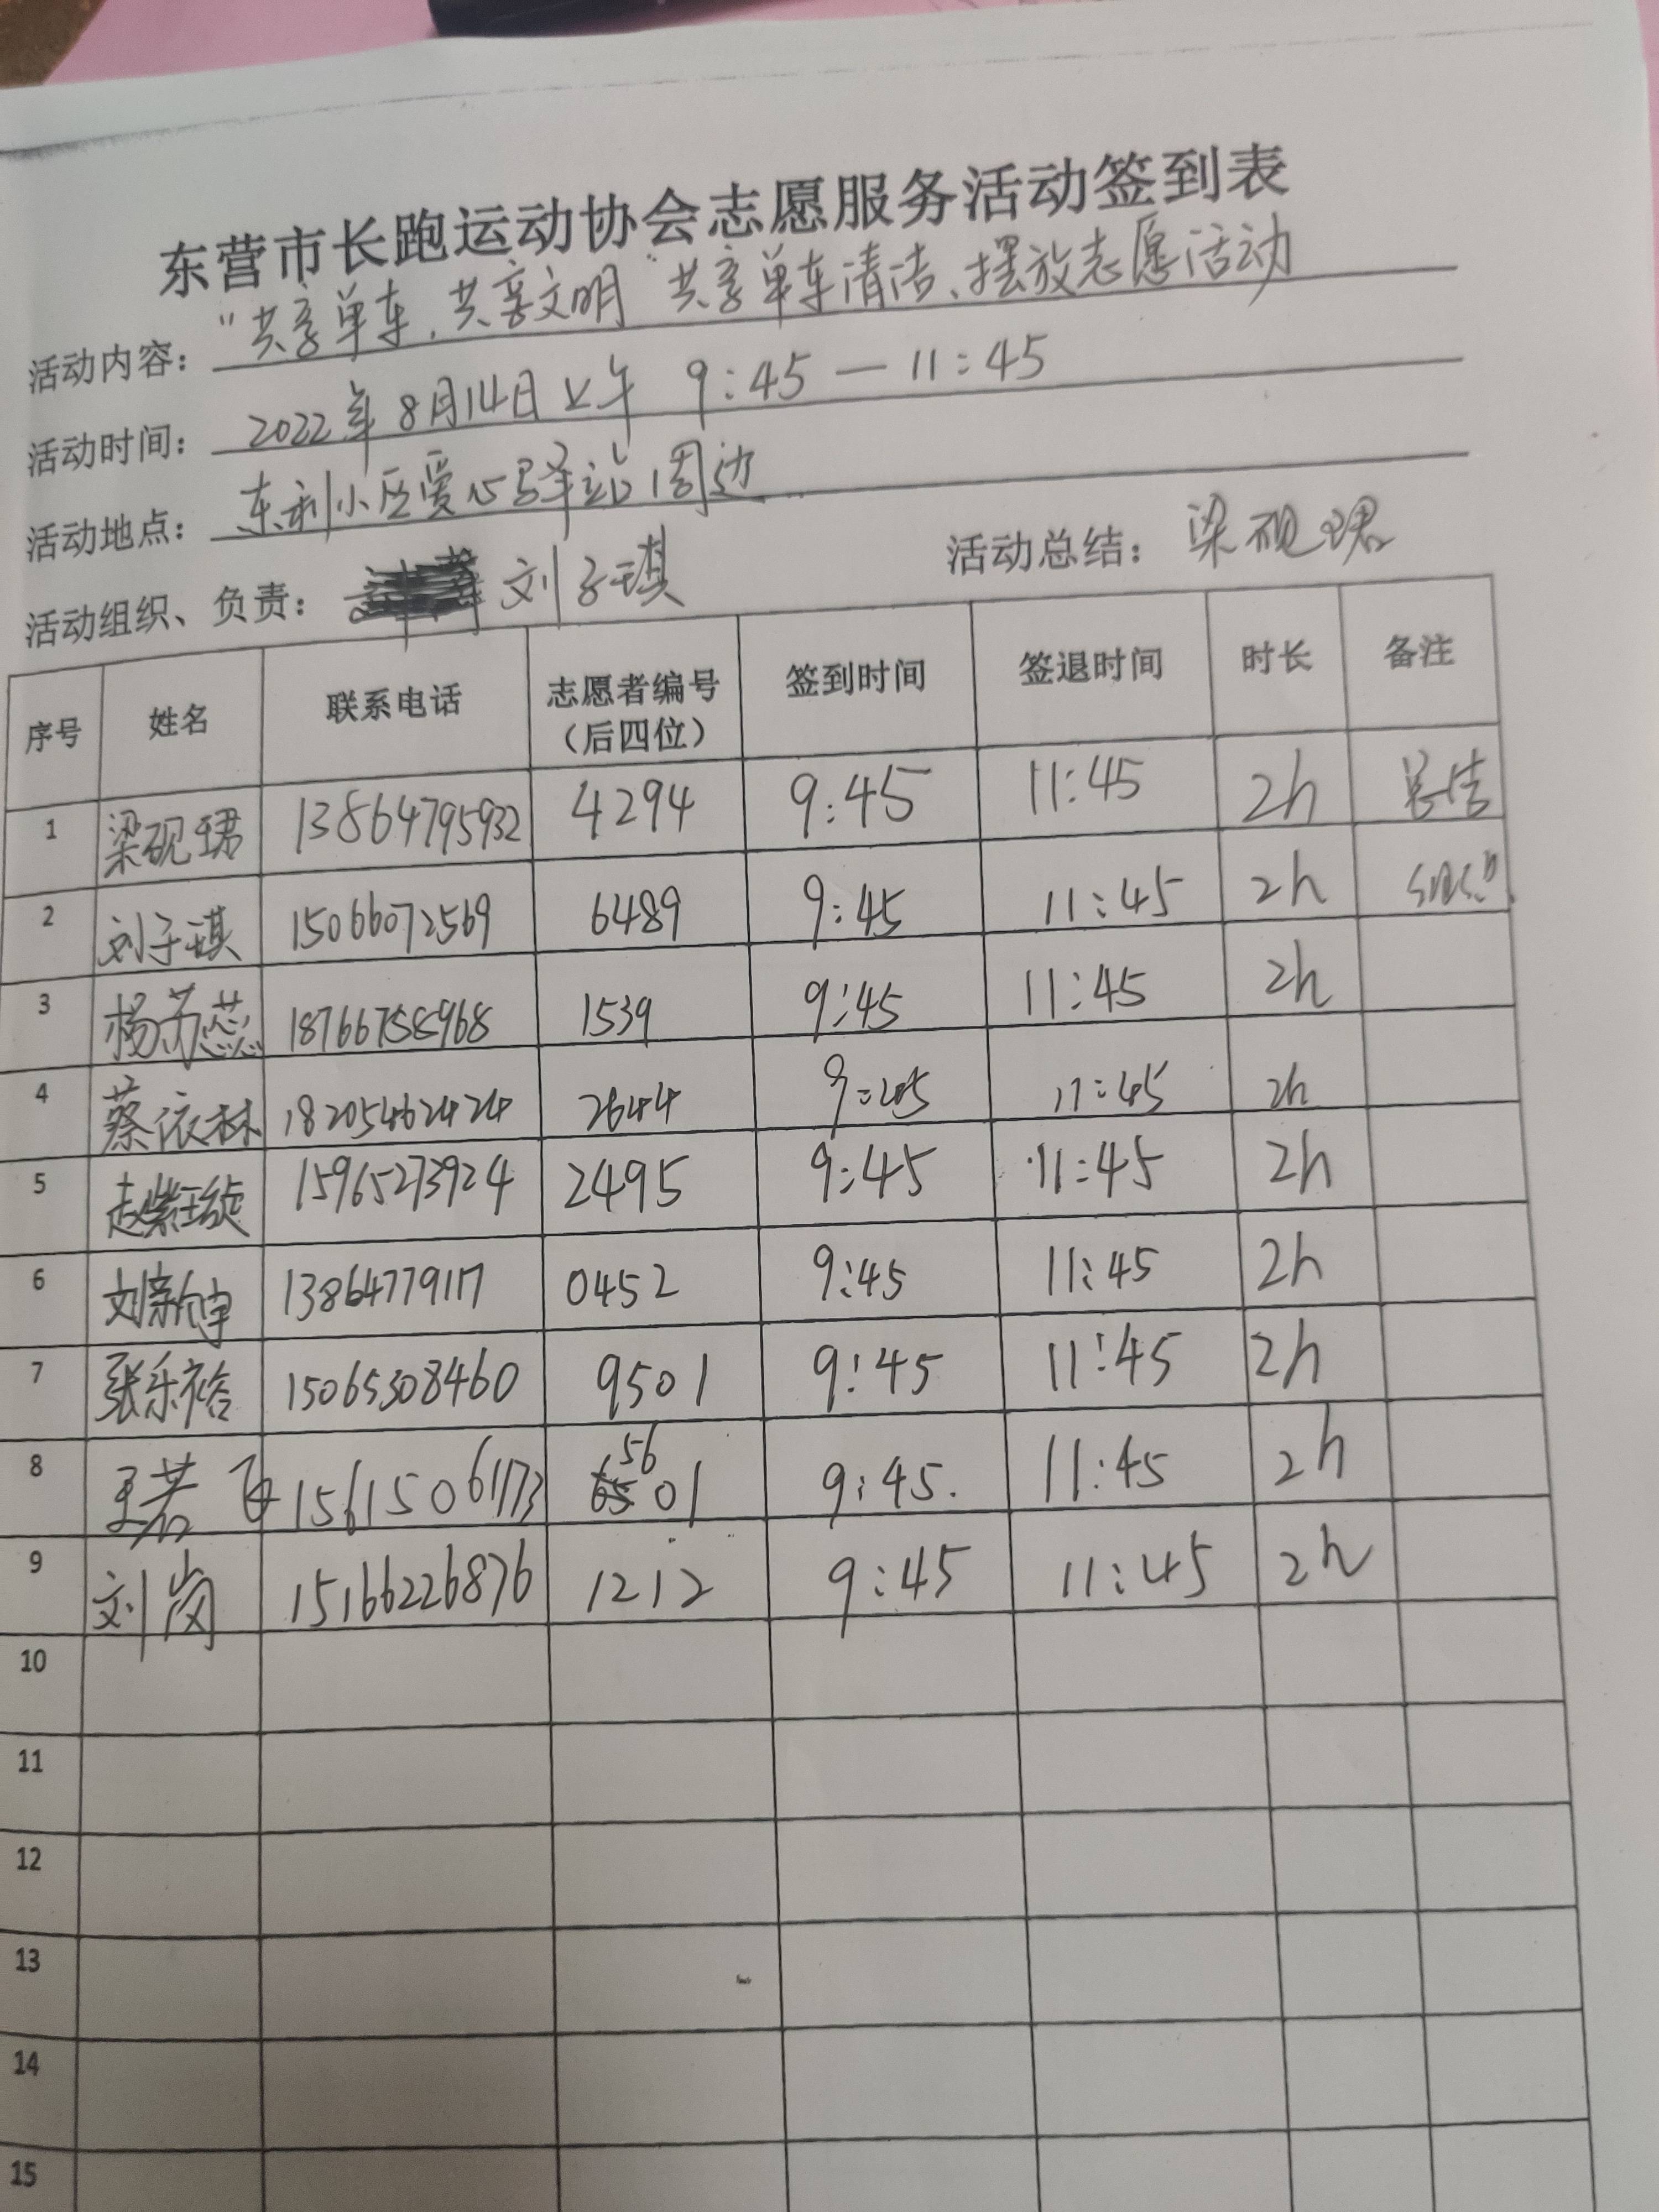 东营市长跑运动协会志愿服务活动签到表
活动内容： "共享单车，共享文明" 共享单车清洁、摆放志愿活动
活动时间： 2022年8月14日上午 9:45—11:45
活动地点： 东利小区爱心驿站周边
活动组织、负责： 刘子琪 活动总结： 梁砚珺
序号 姓名 联系电话 志愿者编号（后四位） 签到时间 签退时间 时长 备注
1 梁砚珺 13864795932 4294 9:45 11:45 2h 总结
2 刘子琪 15066072569 6489 9:45 11:45 2h 组织
3 杨苏蕊 18766758968 1539 9:45 11:45 2h
4 蔡依林 18205462424 2644 9:45 11:45 2h
5 赵紫璇 15965273924 2495 9:45 11:45 2h
6 13864779117 0452 9:45 11:45 2h
7 张乐裕 15065308460 9501 9:45 11:45 2h
8 王若飞 15615061173 5601 9:45 11:45 2h
9 刘岗 15166226876 1212 9:45 11:45 2h
10
11
12
13
14
15